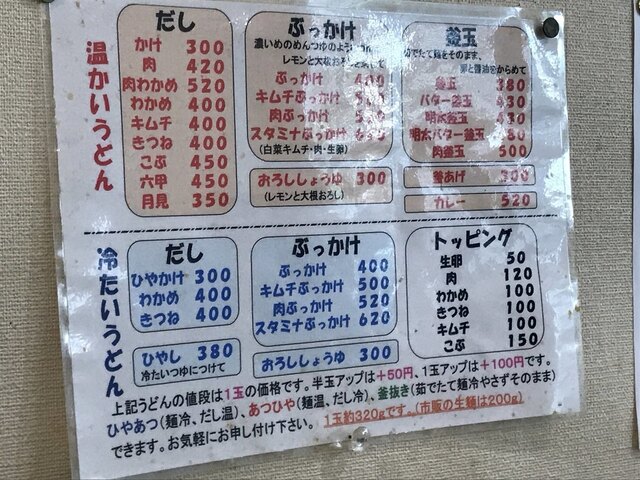 温かいうどん
だし
かけ 300
肉 420
肉わかめ 520
わかめ 400
キムチ 400
きつね 400
こぶ 450
六甲 450
月見 350
ぶっかけ
濃いめのめんつゆの
レモンと大根おろし
ぶっかけ 400
キムチぶっかけ
肉ぶっかけ
スタミナぶっかけ
(白菜キムチ・肉・生卵)
おろししょうゆ 300
(レモンと大根おろし)
釜玉
茹でたて麺をそのまま、
卵と醤油をからめて
釜玉 380
バター釜玉 430
明太釜玉 430
明太バター釜玉
肉釜玉 500
釜あげ 300
カレー 520
冷たいうどん
だし
ひやかけ 300
わかめ 400
きつね 400
ひやし 380
冷たいつゆにつけて
ぶっかけ
ぶっかけ 400
キムチぶっかけ 500
肉ぶっかけ 520
スタミナぶっかけ 620
おろししょうゆ 300
トッピング
生卵 50
肉 120
わかめ 100
きつね 100
キムチ 100
こぶ 150
上記うどんの値段は1玉の価格です。半玉アップは+50円、1玉アップは+100円です。
ひやあつ(麺冷、だし温)、あつひや(麺温、だし冷)、釜抜き(茹でたて麺冷やさずそのまま)
できます。お気軽にお申し付け下さい。 1玉約320gです。(市販の生麺は200g)